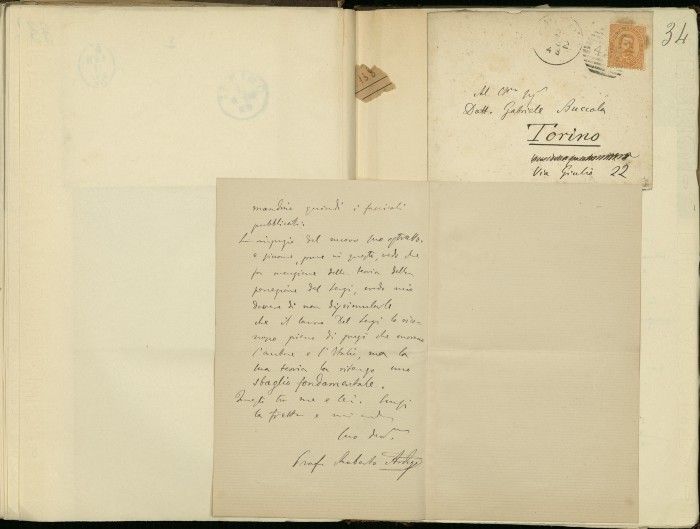 34
Al Ch.mo Sig.r
Dott. Gabriele Buccola
Torino
Via Giulio 22
quindi i fascicoli
pubblicati.
La ringrazio del nuovo suo
e siccome, pure in questo, vedo che
fa menzione della teoria della
percezione del Sergi, credo mio
dovere di non dissimularle
che il lavoro del Sergi lo
pieno di pregi che
l'autore e l'Italia, ma la
sua teoria la ritengo uno
sbaglio fondamentale.
Questo tra me e lei.
la
Suo dev.
Prof. Roberto Ardigò